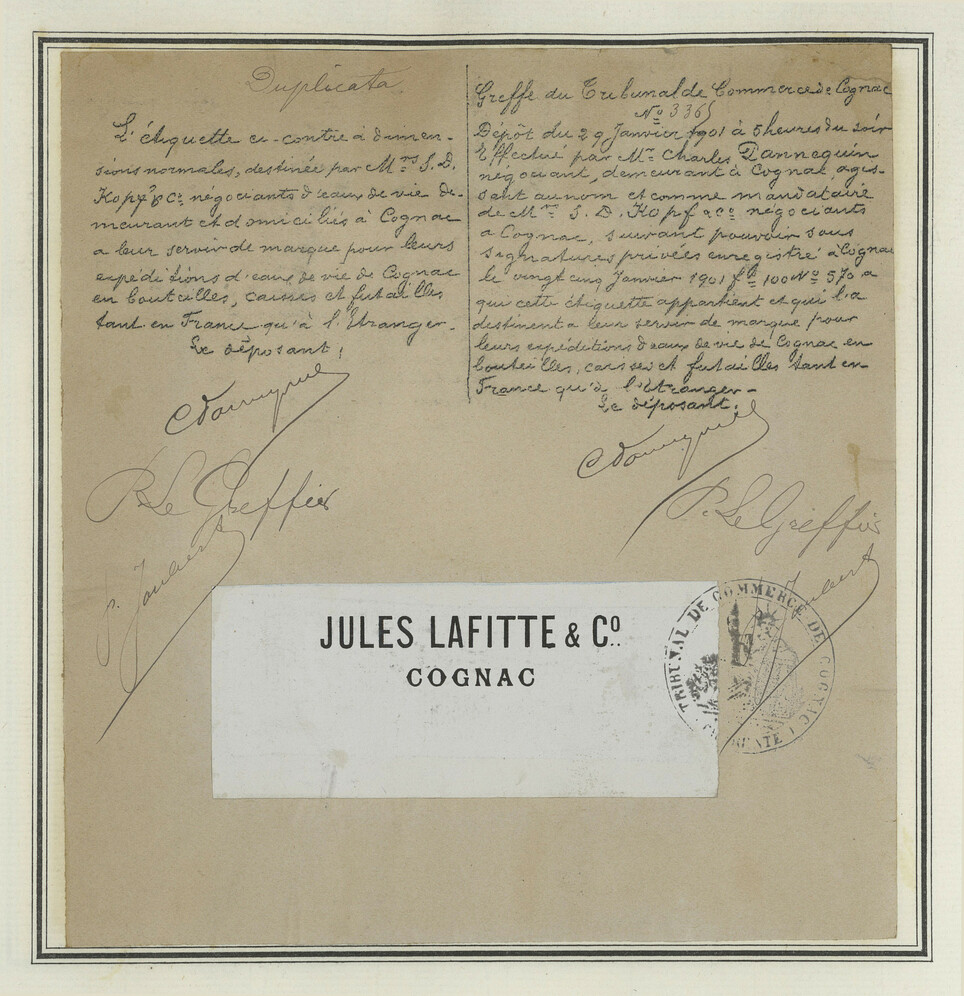 Duplicata
L'étiquette ci-contre à dimen-
sions normales, destinée par Mrs S. D.
Kopf & Co négociants d'eaux de vie de-
meurant et domiciliés à Cognac
a leur servir de marque pour leurs
expéditions d'eaux de vie de Cognac
en bouteilles, caisses et futailles
tant en France qu'à l'Etranger.
Le déposant,
P. Le Greffier
P. Joubert
Greffe du Tribunal de Commerce de Cognac
No 3365
Dépôt du 29 Janvier 1901 à 5 heures du soir
Effectué par Mr Charles Dannequin
négociant, demeurant à Cognac, agis-
sant au nom et comme mandataire
de Mrs S. D. Kopf & Co négociants
a Cognac, suivant pouvoir sous
signatures privées enregistré à Cognac
le vingt cinq Janvier 1901 fo 100 No 570, a
qui cette étiquette appartient et qui l'a
destinent a leur servir de marque pour
leurs expéditions d'eaux de vie de Cognac en
bouteilles, caisses et futailles tant en
France qu'à l'étranger-
Le déposant.
P. Le Greffier
Joubert
JULES LAFITTE & Co.
COGNAC
TRIBUNAL DE COMMERCE DE COGNAC